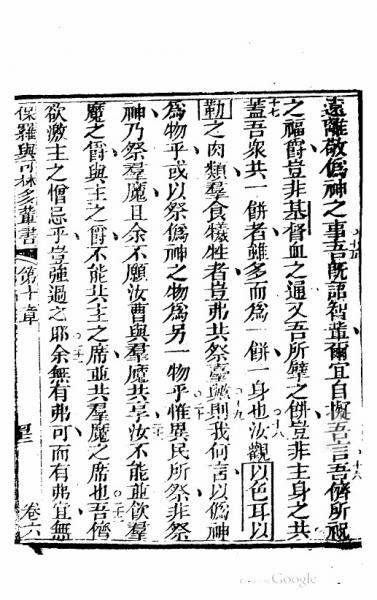 遠離敬偽神之事吾旣語智輩爾宜自擬吾言吾儕所祝
之福爵豈非基督血之通又吾所擘之餅豈非主身之共
蓋吾衆共一餅者雖多而為一餅一身也汝觀以色耳以
勒之肉類羣食犧牲者豈弗共祭臺與則我何言以偽神
為物乎或以祭偽神之物為另一物乎惟異民所祭非祭
神乃祭羣魔且余不願汝曹與羣魔共享汝不能並飲羣
魔之爵與主之爵不能共主之席並共羣魔之席也吾儕
欲激主之憎忌乎豈強過之耶余無有弗可而有弗宜無
保羅與可林多輩書 第十章 卷六
Google